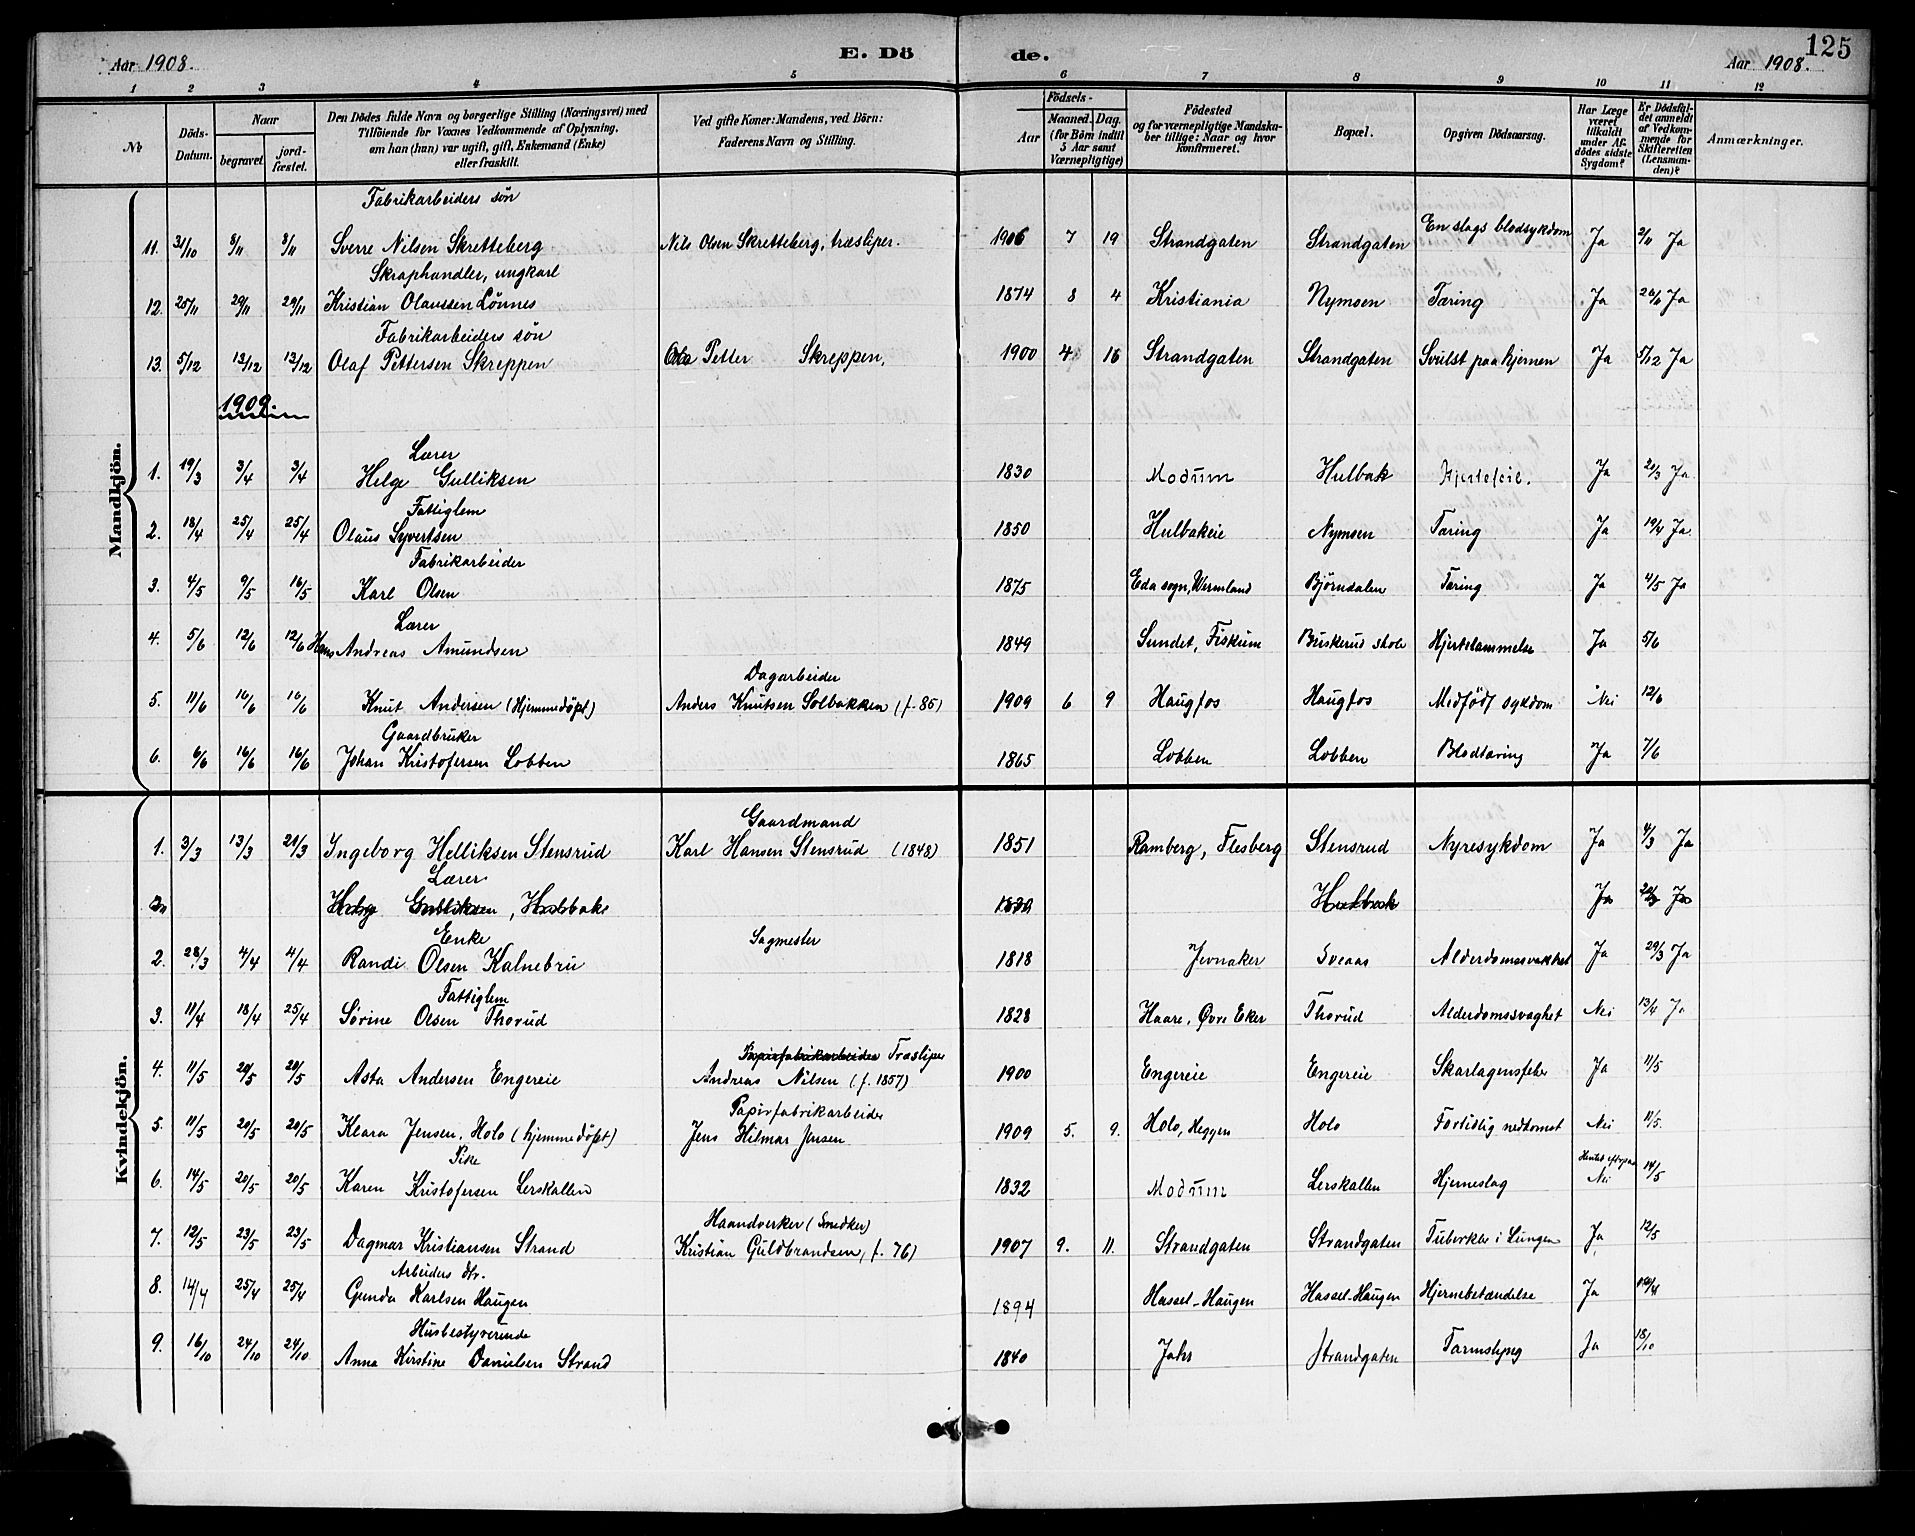 Aar 1908. E. Dö de. Aar 1908. 125
1 2 3 4 5 6 7 8 9 10 11 12
№ Döds-Datum. Naar begravet. jordfæstet. Den Dödes fulde Navn og borgerlige Stilling (Næringsvei) med Tilföiende for Voxnes Vedkommende af Oplysning, om han (hun) var ugift, gift, Enkemand (Enke) eller fraskilt. Ved gifte Koner: Mandens, ved Börn: Faderens Navn og Stilling. Födsels- Aar Maaned. Dag. (for Börn indtil 5 Aar samt Værnepligtige) Födested og for værnepligtige Mandskaber tillige: Naar og hvor konfirmeret. Bopæl. Opgiven Dödsaarsag. Har Læge været tilkaldt under Afdödes sidste Sygdom? Er Dödsfaldet anmeldt af Vedkommende for Skifteretten (Lensmanden)? Anmærkninger.
Mandkjön.
Fabrikarbeiders sön
11. 31/10 8/11 8/11 Sverre Nilsen Skretteberg Nils Olsen Skretteberg, træsliper. 1906 7 19 Strandgaten Strandgaten En slags blodsykdom Ja 2/11 Ja
Skraphandler, ungkarl
12. 25/11 29/11 29/11 Kristian Olaussen Lönnes 1874 8 4 Kristiania Nymoen Tæring Ja 26/11 Ja
Fabrikarbeiders sön
13. 5/12 13/12 13/12 Olaf Pettersen Skreppen Petter Skreppen, 1900 4 16 Strandgaten Strandgaten Svulst paa hjernen Ja 5/12 Ja
1909.
Lærer
1. 19/3 3/4 3/4 Helge Gulliksen 1830 Modum Hulbak Hjertefeil. Ja 20/3 Ja
Fattiglem
2. 18/4 25/4 25/4 Olaus Syvertsen 1850 Hulbakeie Nymoen Tæring Ja 19/4 Ja
Fabrikarbeider
3. 4/5 9/5 16/5 Karl Olsen 1875 Eda sogn, Wermland Björndalen Tæring Ja 4/5 Ja
Lærer
4. 5/6 12/6 12/6 Hans Andreas Amundsen 1849 Sundet, Fiskum Buskerud skole Hjertelammelse Ja 5/6
Dagarbeider
5. 11/6 16/6 16/6 Knut Andersen (Hjemmedöpt) Anders Knutsen Solbakken (f. 85) 1909 6 9 Haugfos Haugfos Medfödt sykdom Nei 12/6
Gaardbruker
6. 6/6 16/6 16/6 Johan Kristofersen Lobben 1865 Lobben Lobben Blodtæring Ja 7/6
Kvindekjön.
Gaardmand
1. 3/3 13/3 21/3 Ingeborg Helliksen Stensrud Karl Hansen Stensrud (1848) 1851 Ramberg, Flesberg Stensrud Nyresykdom Ja 4/3 Ja
Lærer
2. Helge Gulliksen, Hulbake 1830 Hulbak Ja 20/3 Ja
Enke Sagmester
2. 28/3 4/4 4/4 Randi Olsen Kalnebru 1818 Jevnaker Sveaas Alderdomssvakhet Ja 29/3 Ja
Fattiglem
3. 11/4 18/4 25/4 Sörine Olsen Thorud 1828 Haare, Øvre Eker Thorud Alderdomssvaghet Nei 13/4 Ja
Papirfabrikarbeider Træsliper
4. 11/5 20/5 20/5 Asta Andersen Engereie Andreas Nilsen (f. 1857) 1900 Engereie Engereie Skarlagensfeber Ja 11/5
Papirfabrikarbeider
5. 11/5 20/5 20/5 Klara Jensen, Holo (hjemmedöpt) Jens Hilmar Jensen 1909 5. 9. Holo, Heggen Holo Fortidlig nedkomst Nei 11/5.
Pike
6. 14/5 20/5 20/5 Karen Kristofersen Lerskallen 1832 Modum Lerskallen Hjerneslag Nei 14/5
Haandverker (Snedker)
7. 12/5 23/5 23/5 Dagmar Kristiansen Strand Kristian Guldbrandsen, f. 76) 1907 9. 11. Strandgaten Strandgaten Tuberkler i Lungen Ja 12/5
Arbeiders dtr.
8. 14/4 25/4 25/4 Gunda Karlsen Haugen 1894 Hassel-Haugen Hassel-Haugen Hjernebetændelse Ja
Husbestyrerinde
9. 16/10 24/10 24/10 Anna Kirstine Danielsen Strand 1840 Strandgaten Tarmslyng Ja 18/10